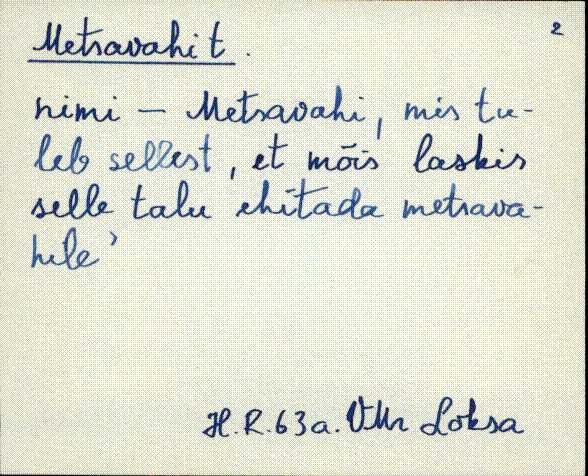 2
Metsavahi t.
nimi – Metsavahi, mis tu-
leb sellest, et mõis laskis
selle talu ehitada metsava-
hile'
H.R. 63 a. VMr Loksa